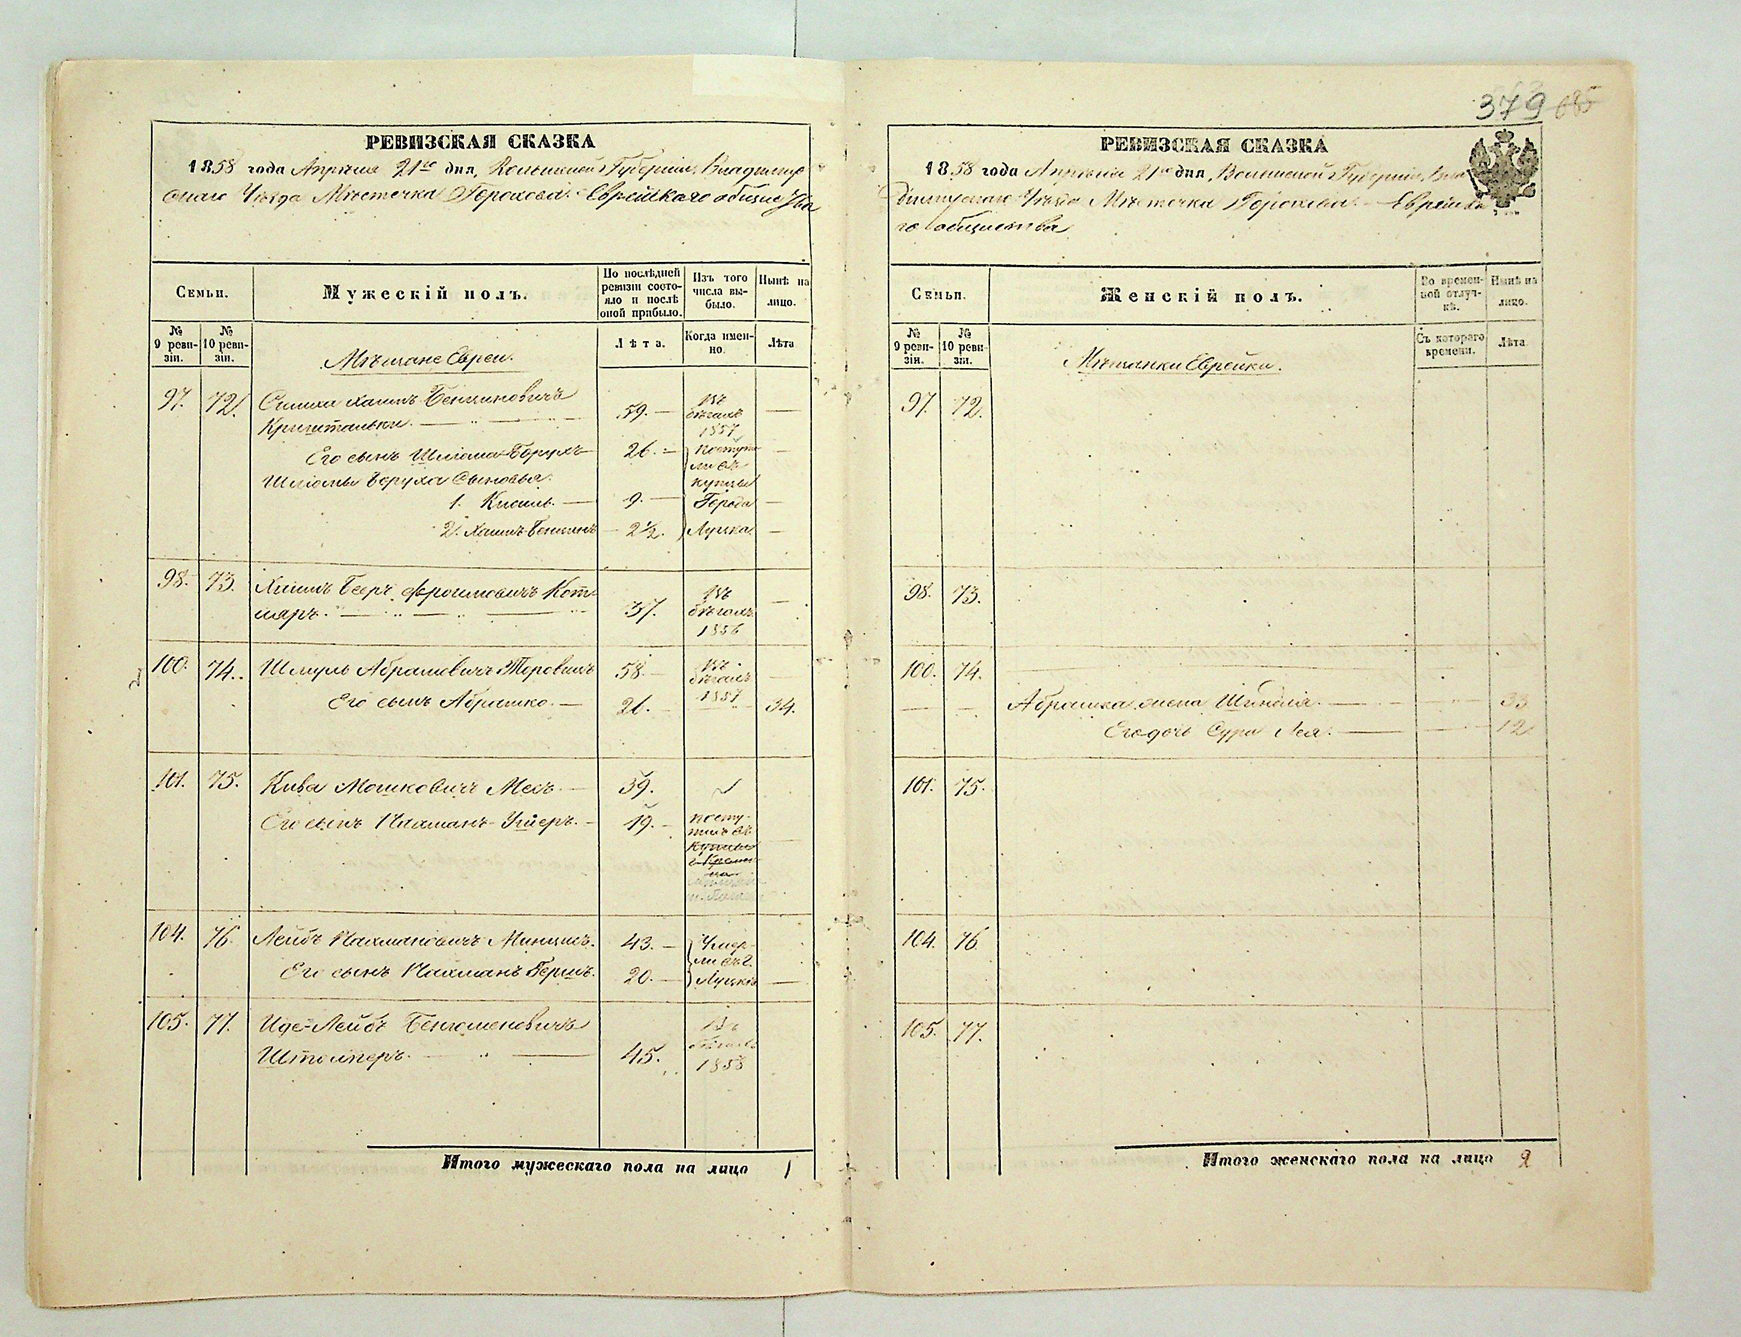 379 685
РЕВИЗСКАЯ СКАЗКА
1858 года Апрѣля 21го дня, Волынской Губерніи, Владимір
скаго Уѣзда Мѣстечка Горохова Еврейскаго общества
Семьи.
Мужескій полъ.
По послѣдней ревизіи состояло и послѣ оной прибыло.
Изъ того числа выбыло.
Нынѣ на лицо.
№ 9 ревизіи.
№ 10 ревизіи.
Мѣщане Евреи.
Лѣта.
Когда именно.
Лѣта
97. 72. Хаимъ
59. Въ бѣгахъ 1857
Его сынъ Шлиома Борухъ 26. поступили въ купцы
Шлиомы Боруха Сыновья:
1. Кисиль 9. Города
2. Хаимъ 2½. Луцка
98. 73. Хаимъ Беръ Фроимовичъ Кот
ляръ. 37. Въ бѣгахъ 1856
100. 74. Шмуль Абрамовичъ 58. Въ бѣгахъ 1857
Его сынъ Абрашко 21. 34.
101. 75. Кива Мошковичъ 59.
Его сынъ Нахманъ Ушеръ. 19. поступилъ въ купцы
104. 76. Лейбъ Нахмановичъ 43. Умерли въ г.
Его сынъ Нахманъ Гершъ. 20. Луцкѣ
105. 77. Иде-Лейбъ
Штемперъ. 45. Въ бѣгахъ 1858
Итого мужескаго пола на лицо 1
РЕВИЗСКАЯ СКАЗКА
1858 года Апрѣля 21го дня, Волынской Губерніи, Вла
димірскаго Уѣзда Мѣстечка Горохова Еврейска
го общества
Семьи.
Женскій полъ.
Во временной отлучкѣ.
Нынѣ на лицо.
№ 9 ревизіи.
№ 10 ревизіи.
Мѣщанки Еврейки.
Съ котораго времени.
Лѣта.
97. 72.
98. 73.
100. 74.
Абрашка жена Шейндля 33
Его дочь Сура Лея. 12
101. 75.
104. 76.
105. 77.
Итого женскаго пола на лицо 2